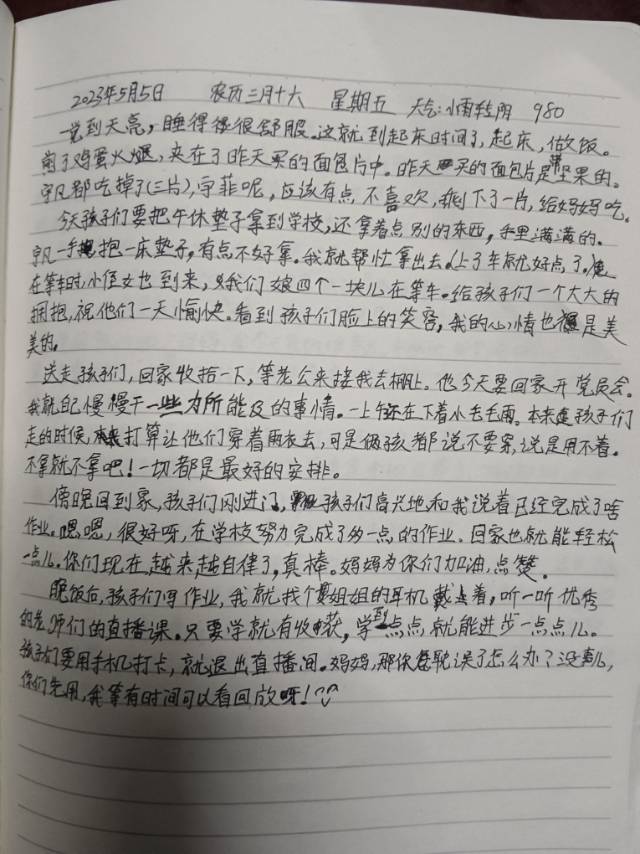 2023年5月5日 农历三月十六 星期五 天气:小雨转阴 980
一觉到天亮，睡得得很舒服。这就到起床时间了，起床，做饭。
煎了鸡蛋火腿，夹在了昨天买的面包片中。昨天买的面包片是带坚果的。
宇凡都吃掉了(三片)，宇菲呢，应该有点不喜欢，剩下了一片，给妈妈吃。
今天孩子们要把午休垫子拿到学校，还拿着点别的东西，手里满满的。
宇凡一手抱一床垫子，有点不好拿。我就帮忙拿出去。(上了车就好点了。)
在等车时，小侄女也到来，我们娘四个一块儿在等车。给孩子们一个大大的
拥抱，祝他们一天愉快。看到孩子们脸上的笑容，我的心情也是美
美的。
送走孩子们，回家收拾一下，等老公来接我去棚上。他今天要回家开党员会。
我就自己慢慢干一些力所能及的事情。一上午还在下着小毛毛雨。本来孩子们
走的时候，打算让他们穿着雨衣去，可是俩孩都说不要穿，说是用不着。
不拿就不拿吧！一切都是最好的安排。
傍晚回到家，孩子们刚进门，孩子们高兴地和我说着已经完成了啥
作业。嗯嗯，很好呀，在学校努力完成了多一点的作业。回家也就能轻松
一点儿。你们现在越来越自律了，真棒。妈妈为你们加油，点赞。
晚饭后，孩子们写作业，我就找个姐姐的耳机戴着，听一听优秀
的老师们的直播课。只要学就有收获，学到一点点就能进步一点点儿。
孩子们要用手机打卡，就退出直播间。妈妈，那你耽误了怎么办？没事儿，
你们先用，我等有时间可以看回放呀！